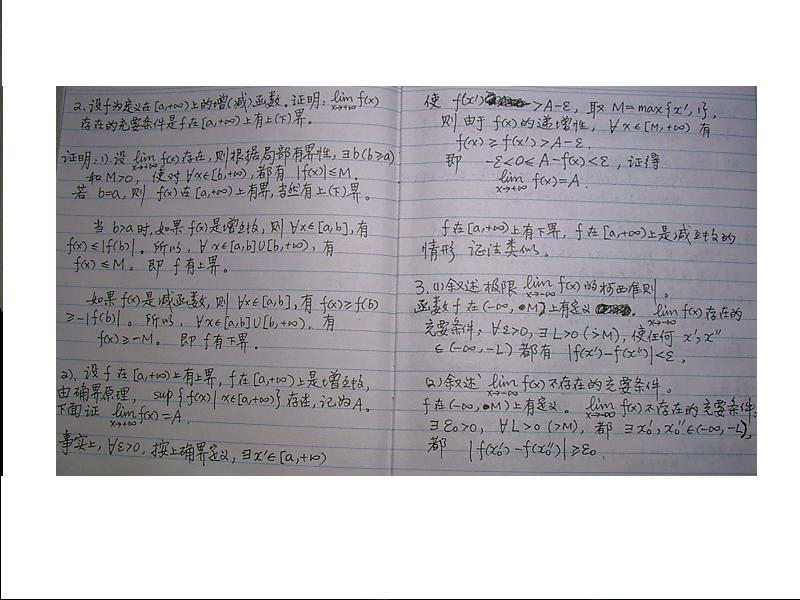 2、设f为定义在[a,+∞)上的增(减)函数。证明: lim f(x)
x→+∞
存在的充要条件是f在[a,+∞)上有上(下)界。
证明: 1). 设 lim f(x)存在, 则根据局部有界性, ∃b(b≥a)
x→+∞
和 M>0, 使对∀x∈[b,+∞), 都有 |f(x)|≤M.
若 b=a, 则 f(x)在[a,+∞)上有界, 当然有上(下)界。
当 b>a时, 如果f(x)是增函数, 则∀x∈[a,b], 有
f(x)≤|f(b)|。所以, ∀x∈[a,b]∪[b,+∞), 有
f(x)≤M。即 f有上界。
如果f(x)是减函数, 则∀x∈[a,b], 有f(x)≥f(b)
≥-|f(b)|。所以, ∀x∈[a,b]∪[b,+∞), 有
f(x)≥-M. 即f有下界。
2)、设f在[a,+∞)上有上界, f在[a,+∞)上是增函数,
由确界原理, sup{f(x)|x∈[a,+∞)}存在, 记为A。
下面证 lim f(x)=A.
x→+∞
事实上, ∀ε>0, 按上确界定义, ∃x'∈[a,+∞)
使 f(x')>A-ε, 取 M=max{x',1},
则由于f(x)的递增性, ∀x∈[M,+∞)有
f(x)≥f(x')>A-ε.
即 -ε<0≤A-f(x)<ε, 证得
lim f(x)=A.
x→+∞
f在[a,+∞)上有下界, f在[a,+∞)上是减函数的
情形 证法类似。
3.(1)叙述极限 lim f(x)的柯西准则。
x→-∞
函数f在(-∞,M]上有定义。 lim f(x)存在的
x→-∞
充要条件: ∀ε>0, ∃L>0(>M), 使任何 x',x''
∈(-∞,-L)都有 |f(x')-f(x'')|<ε.
(2)叙述 lim f(x)不存在的充要条件。
x→-∞
f在(-∞,M)上有定义。 lim f(x)不存在的充要条件:
x→-∞
∃ε₀>0, ∀L>0(>M), 都∃x₀',x₀''∈(-∞,-L),
都 |f(x₀')-f(x₀'')|≥ε₀.